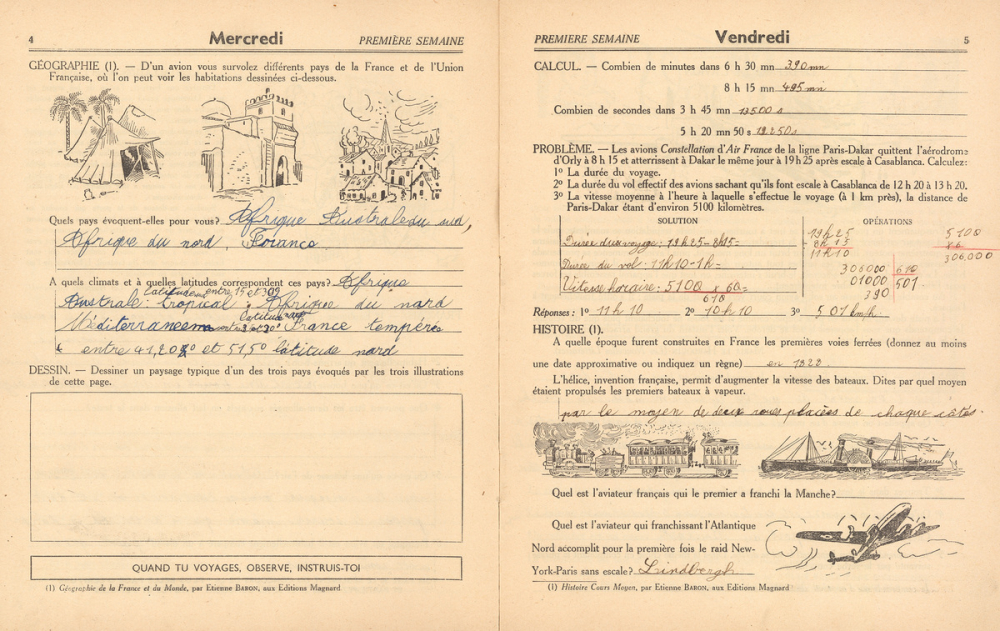 4
Mercredi
PREMIÈRE SEMAINE
GÉOGRAPHIE (1). — D'un avion vous survolez différents pays de la France et de l'Union
Française, où l'on peut voir les habitations dessinées ci-dessous.
Quels pays évoquent-elles pour vous? Afrique Australe du sud,
Afrique du nord, France
A quels climats et à quelles latitudes correspondent ces pays? Afrique
latitude entre 15 et 30º
Australe: tropical. Afrique du nord
latitude
Méditerranéen France tempéré
entre 41,20º et 51,5º latitude nord
DESSIN. — Dessiner un paysage typique d'un des trois pays évoqués par les trois illustrations
de cette page.
QUAND TU VOYAGES, OBSERVE, INSTRUIS-TOI
(1) Géographie de la France et du Monde, par Etienne BARON, aux Editions Magnard
PREMIERE SEMAINE
Vendredi
5
CALCUL. — Combien de minutes dans 6 h 30 mn 390 mn
8 h 15 mn 495 mn
Combien de secondes dans 3 h 45 mn 13500 s
5 h 20 mn 50 s 19250s
PROBLÈME. — Les avions Constellation d'Air France de la ligne Paris-Dakar quittent l'aérodrome
d'Orly à 8 h 15 et atterrissent à Dakar le même jour à 19 h 25 après escale à Casablanca. Calculez:
1º La durée du voyage.
2º La durée du vol effectif des avions sachant qu'ils font escale à Casablanca de 12 h 20 à 13 h 20.
3º La vitesse moyenne à l'heure à laquelle s'effectue le voyage (à 1 km près), la distance de
Paris-Dakar étant d'environ 5100 kilomètres.
SOLUTION
Durée du voyage: 19h25-8h15=
Durée du vol: 11h10-1h=
Vitesse horaire: 5100 x 60=
610
OPÉRATIONS
19h25
8h15
11h10
5100
60
306,000
306000 610
01000 501
390
Réponses: 1º 11h10 2º 10h10 3º 501 km/h.
HISTOIRE (1).
A quelle époque furent construites en France les premières voies ferrées (donnez au moins
une date approximative ou indiquez un règne) en 1828.
L'hélice, invention française, permit d'augmenter la vitesse des bateaux. Dites par quel moyen
étaient propulsés les premiers bateaux à vapeur.
par le moyen de deux roues placées de chaque côtés.
Quel est l'aviateur français qui le premier a franchi la Manche?
Quel est l'aviateur qui franchissant l'Atlantique
Nord accomplit pour la première fois le raid New-
York-Paris sans escale? Lindbergh
(1) Histoire Cours Moyen, par Etienne BARON, aux Editions Magnard